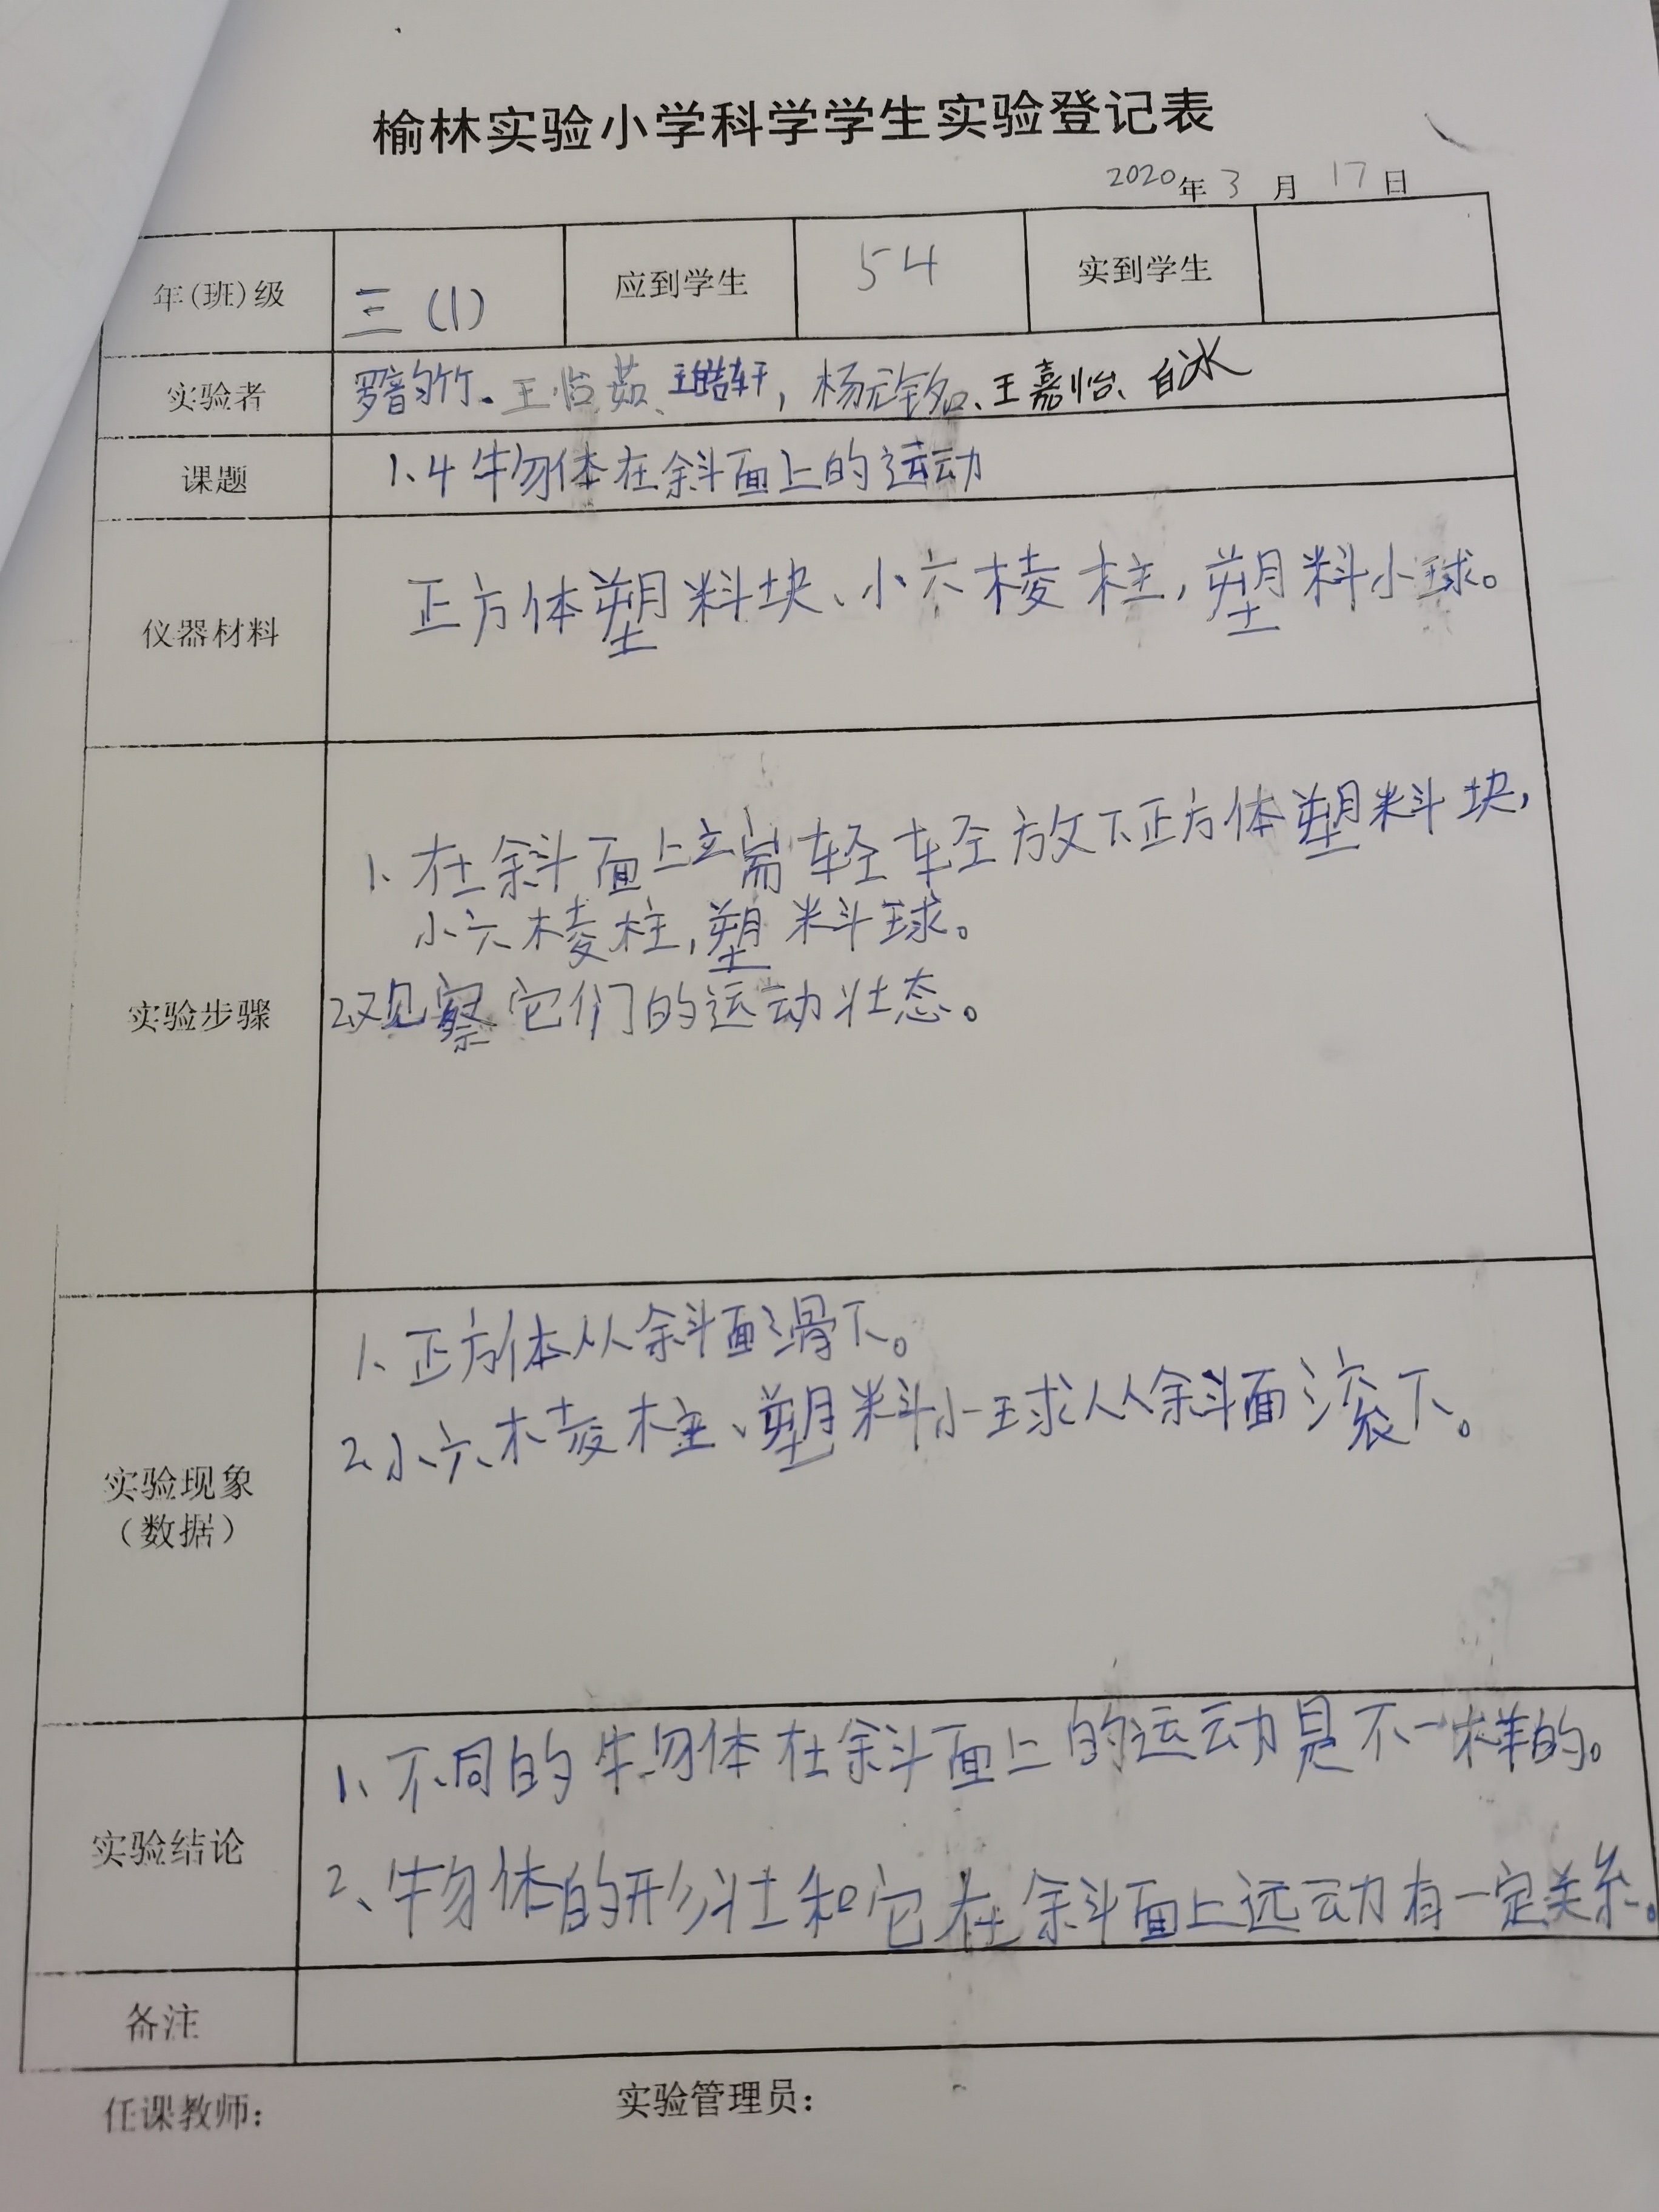 榆林实验小学科学学生实验登记表
2020年3月17日
年(班)级 三(1) 应到学生 54 实到学生
实验者 罗韵竹.王怡茹、王皓轩,杨元铭、王嘉怡、白冰
课题 1.4物体在斜面上的运动
仪器材料 正方体塑料块、小六棱柱,塑料小球。
1、在斜面上端轻轻放下正方体塑料块,
小六棱柱,塑料球。
实验步骤 2观察它们的运动壮态。
1、正方体从斜面滑下。
2、小六棱柱、塑料小球从斜面滚下。
实验现象
(数据)
1、不同的物体在斜面上的运动是不一样的。
实验结论
2、物体的形壮和它在斜面上远动有一定关系。
备注
任课教师: 实验管理员: